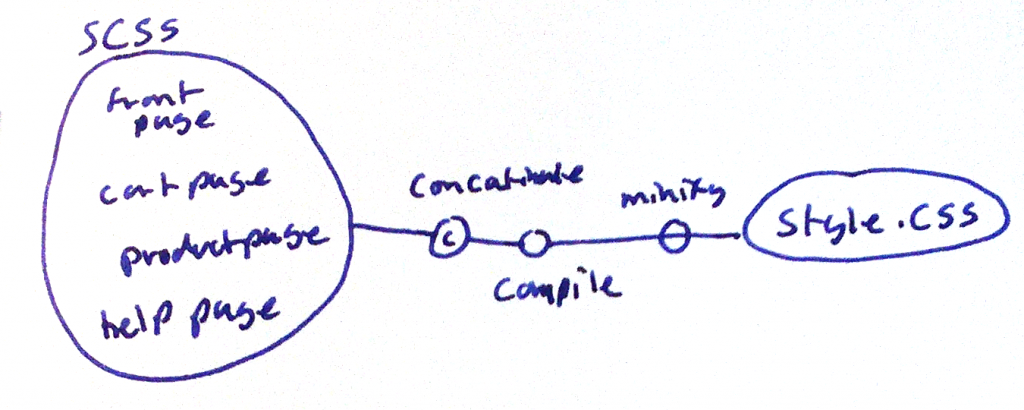 SCSS
front
page
cart page
product page
help page
concatinate
C
compile
minify
style.css